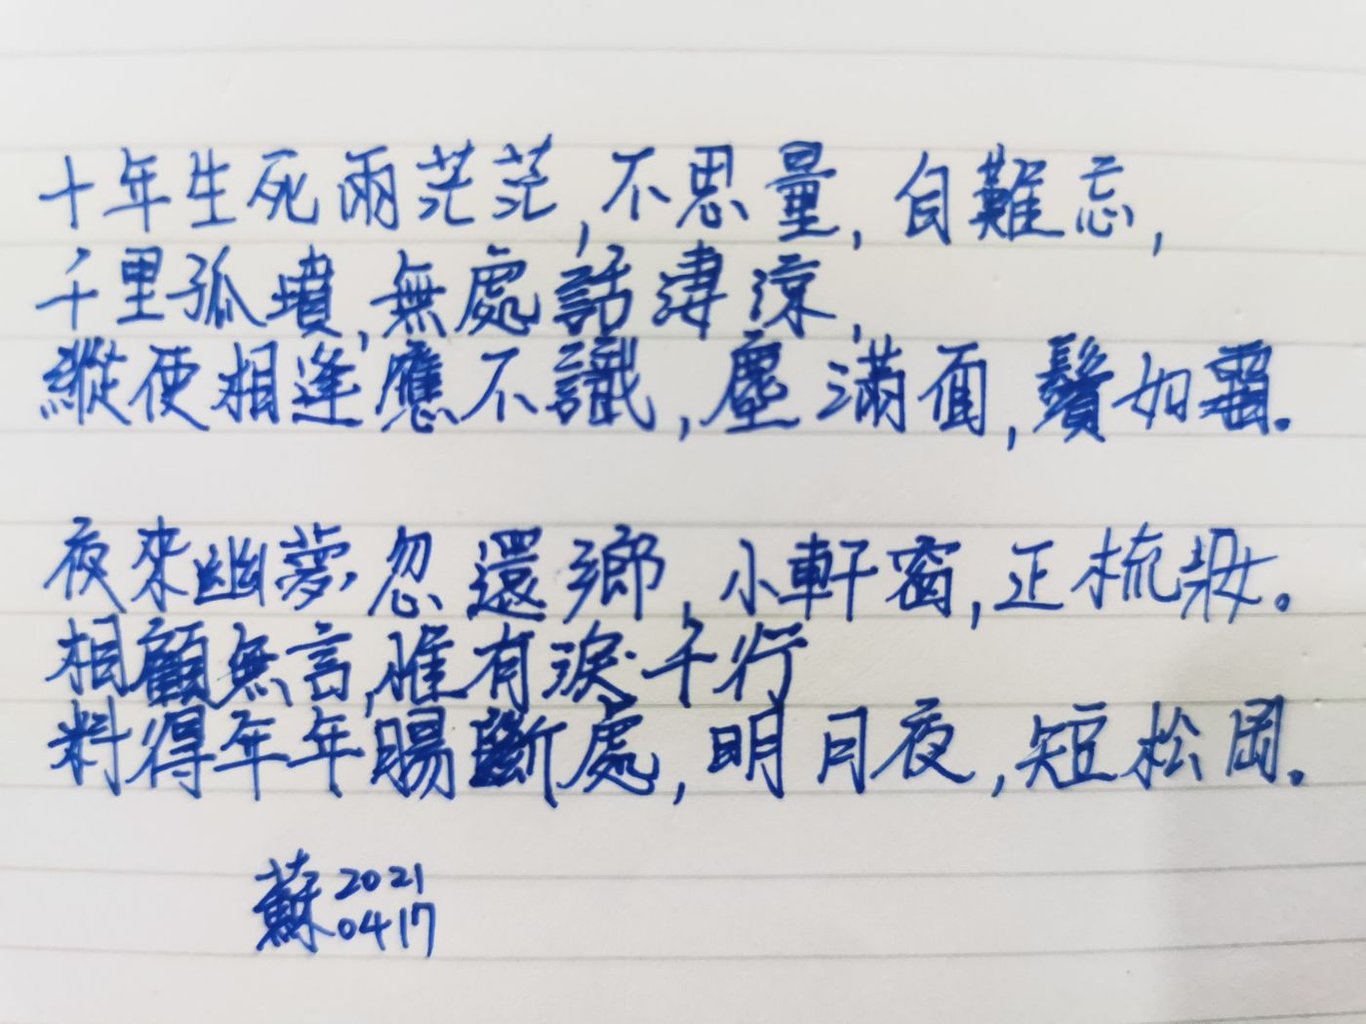 十年生死兩茫茫,不思量,自難忘,
千里孤墳,無處話淒涼,
縱使相逢應不識,塵滿面,鬢如霜。
夜來幽夢忽還鄉,小軒窗,正梳妝。
相顧無言,惟有淚千行
料得年年腸斷處,明月夜,短松岡。
蘇 2021
0417